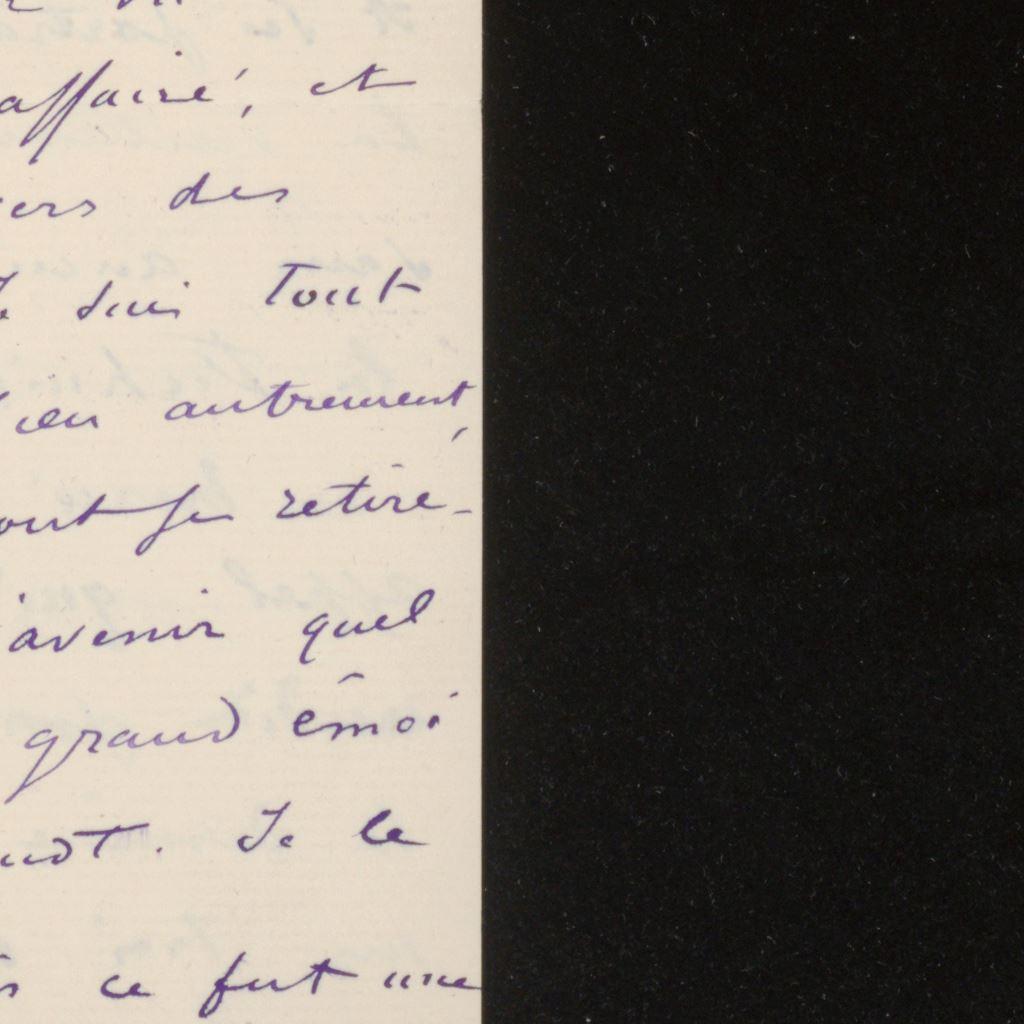 affairé, et
des
Je suis tout
bien autrement,
se retire-
avenir quel
grand émoi
Je le
ce fut une